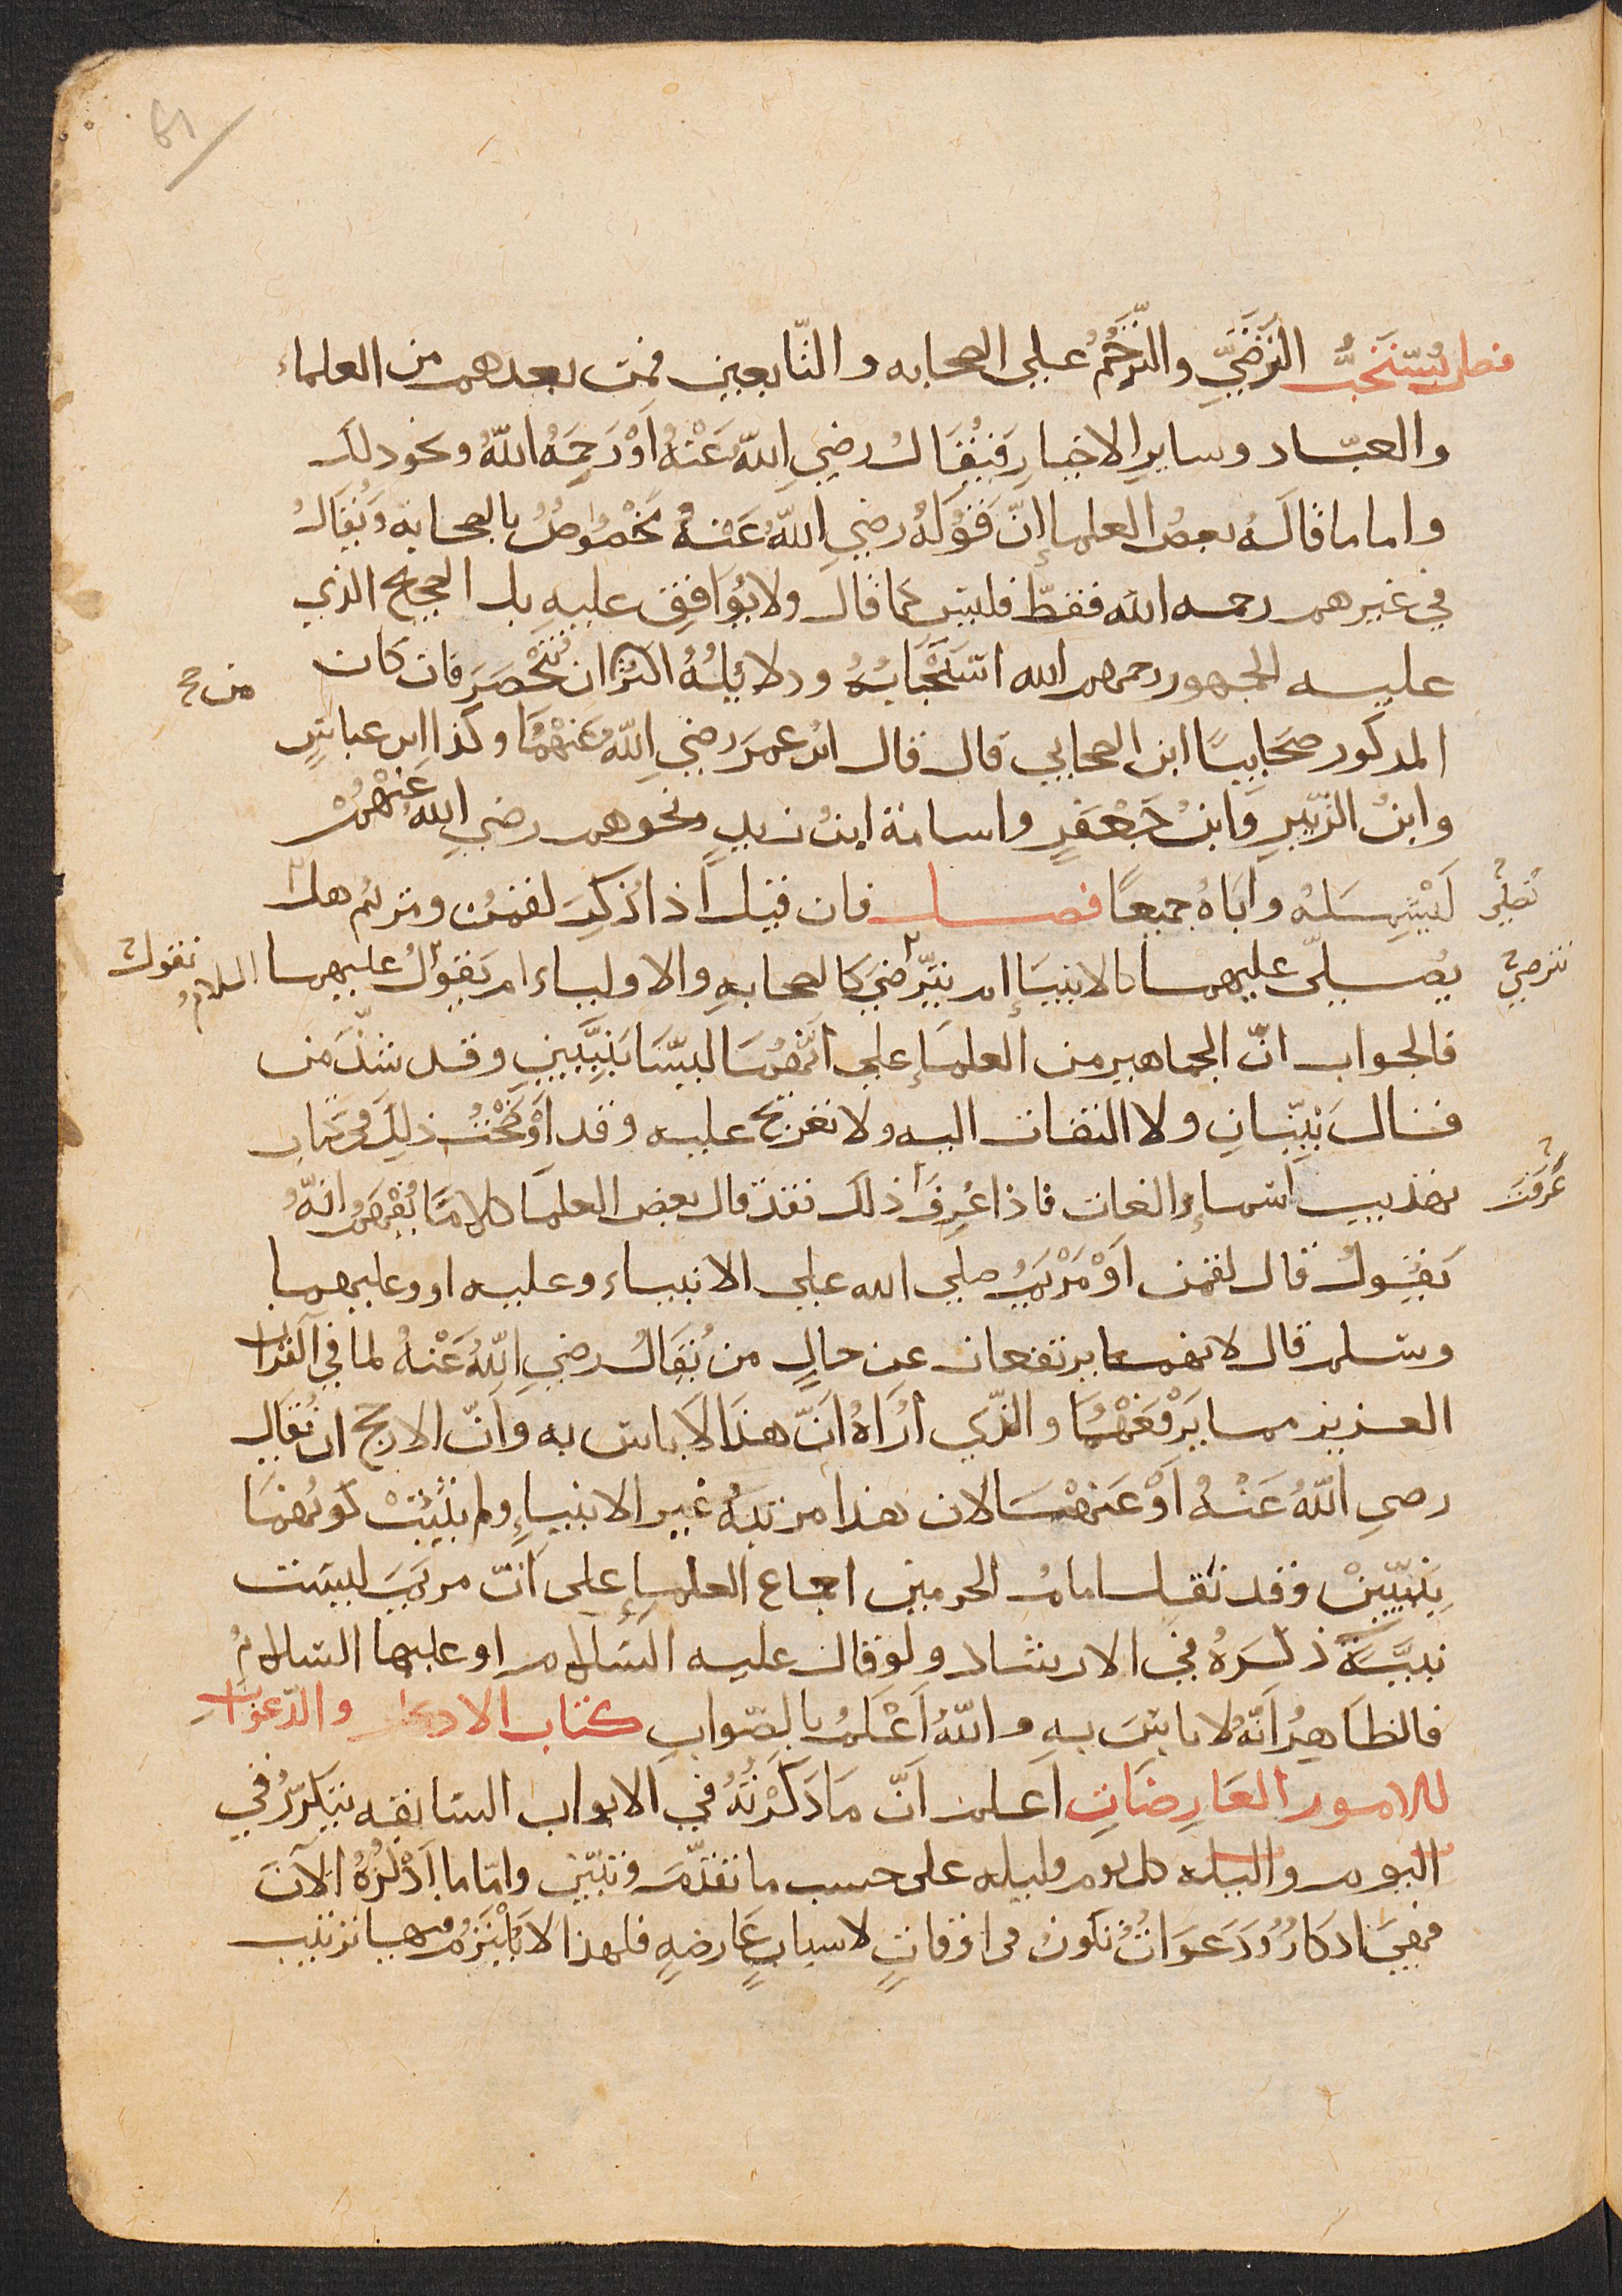 فصل يُستَحَبُّ التَرَضِّي والتَّرَحُّمُ على الصحابه والتّابعين فمن بعدهم من العلماء
والعبّاد وساير الاخيار فَيُقَالُ رضي اللهُ عَنْهُ اَوْ رَحِمَهُ اللهُ ونحو دلك
واما ما قاله بعضُ العلماءِ إنّ قَوْلَهُ رضي اللهُ عَنْهُ مَخْصُوصٌ بالصحابه وَيُقَالُ
في غيرهم رحمه الله فقطّ فليس كما قال ولا يُوَافَق عليهِ بل الصحيح الذي
عليه الجمهور رحمهم الله استحْبَابُهُ ودلائِلُهُ اكثرُ ان تُحْصَرَ فان كان
من صح
المدكور صَحَابيًا ابن الصحابي قال قال ابنُ عمرَ رضي اللهُ عنهُمَا وكذا ابن عباسٍ
وابنُ الزّبيرِ وَابنُ جَعْفَرٍ واسامة ابنُ زيدٍ ونحوهم رضي اللهُ عنْهُمْ
لتَشملهُ واَبَاهُ جميعًا فصل فان قيل اذا ذُكِرَ لقمن ومريم هل
نُصلّي
يُصلّي عليهما كالانبيَاءِ ام يتَرَضّي كالصحابهِ والاولياء ام يَقوُلُ عليهما السلامُ
نترضي
نقول
فالجواب انّ الجماهير من العلماءِ على انّهُمَا ليسَا بنبيَّينِ وقد شذّ من
قال نبيّانِ ولا التفات اليه ولا تعريج عليه وقد اَوْضَحْتُ ذلك في كتاب
تهذيب اسماءِ والغات فاذا عُرِفَ ذلك فقد قال بعض العلما كلامًا يُفْهَمُ منهُ انّهُ
عَرَفتَ
يَقُولُ قال لقمن اَوْ مَرْيَمُ صلي الله على الانبياء وعليه او وعليهما
وسلم قال لانهما يرتفعان عن حالِ من يُقَالُ رضي اللهُ عَنْهُ لما في القرآن
العزيز مما يَرْفَعُهُمَا والذّي اَرَاهُ اَنّ هذا لا باس به وَاَنّ الارجح ان يُقَال
رضي اللهُ عَنْهُ اَوْ عَنهُمَا لان هذا مرتبهُ غير الانبياءِ ولم يثبتْ كونهُمَا
بِنبيّينْ وقد نقل امامُ الحرمين اجماع العلماءِ على انّ مريمَ ليست
نبيَّةً ذكرهُ في الارشاد ولو قال عليه السلام او عليها السلامُ
فالظاهِرُ اَنّهُ لا باسَ بهِ واللهُ اَعْلَمُ بالصّواب كتاب الادكار والدّعوات
للامور العَارِضَاتِ اَعلم اَنّ مَا ذَكَرْتُهُ في الابواب السابقه يتكَرّرُ في
اليوم واليله كل يوم وليله على حسب ما تقدّمَ وتبيّن وامّا ما اَذْكُرُهُ الآنَ
فهيَ ادكارٌ وَدَعَوَاتٌ تكونُ في اوقاتٍ لاسبابٍ عَارضهٍ فلهذا لا يُلْتَزَمُ فيها ترتيب